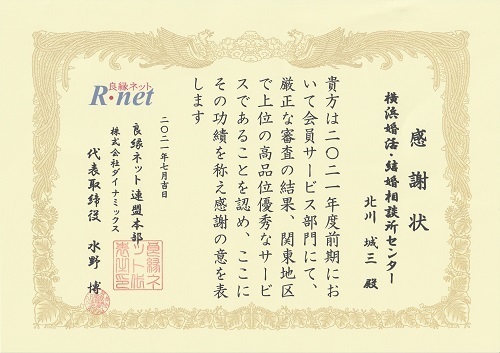 感謝状
横浜婚活・結婚相談所センター
北川 城三 殿
貴方は二〇二一年度前期にお
いて会員サービス部門にて、
厳正な審査の結果、関東地区
で上位の高品位優秀なサービ
スであることを認め、ここに
その功績を称え感謝の意を表
します
二〇二一年七月吉日
良縁ネット連盟本部
株式会社ダイナミックス
代表取締役 水野 博
良縁ネット
R・net